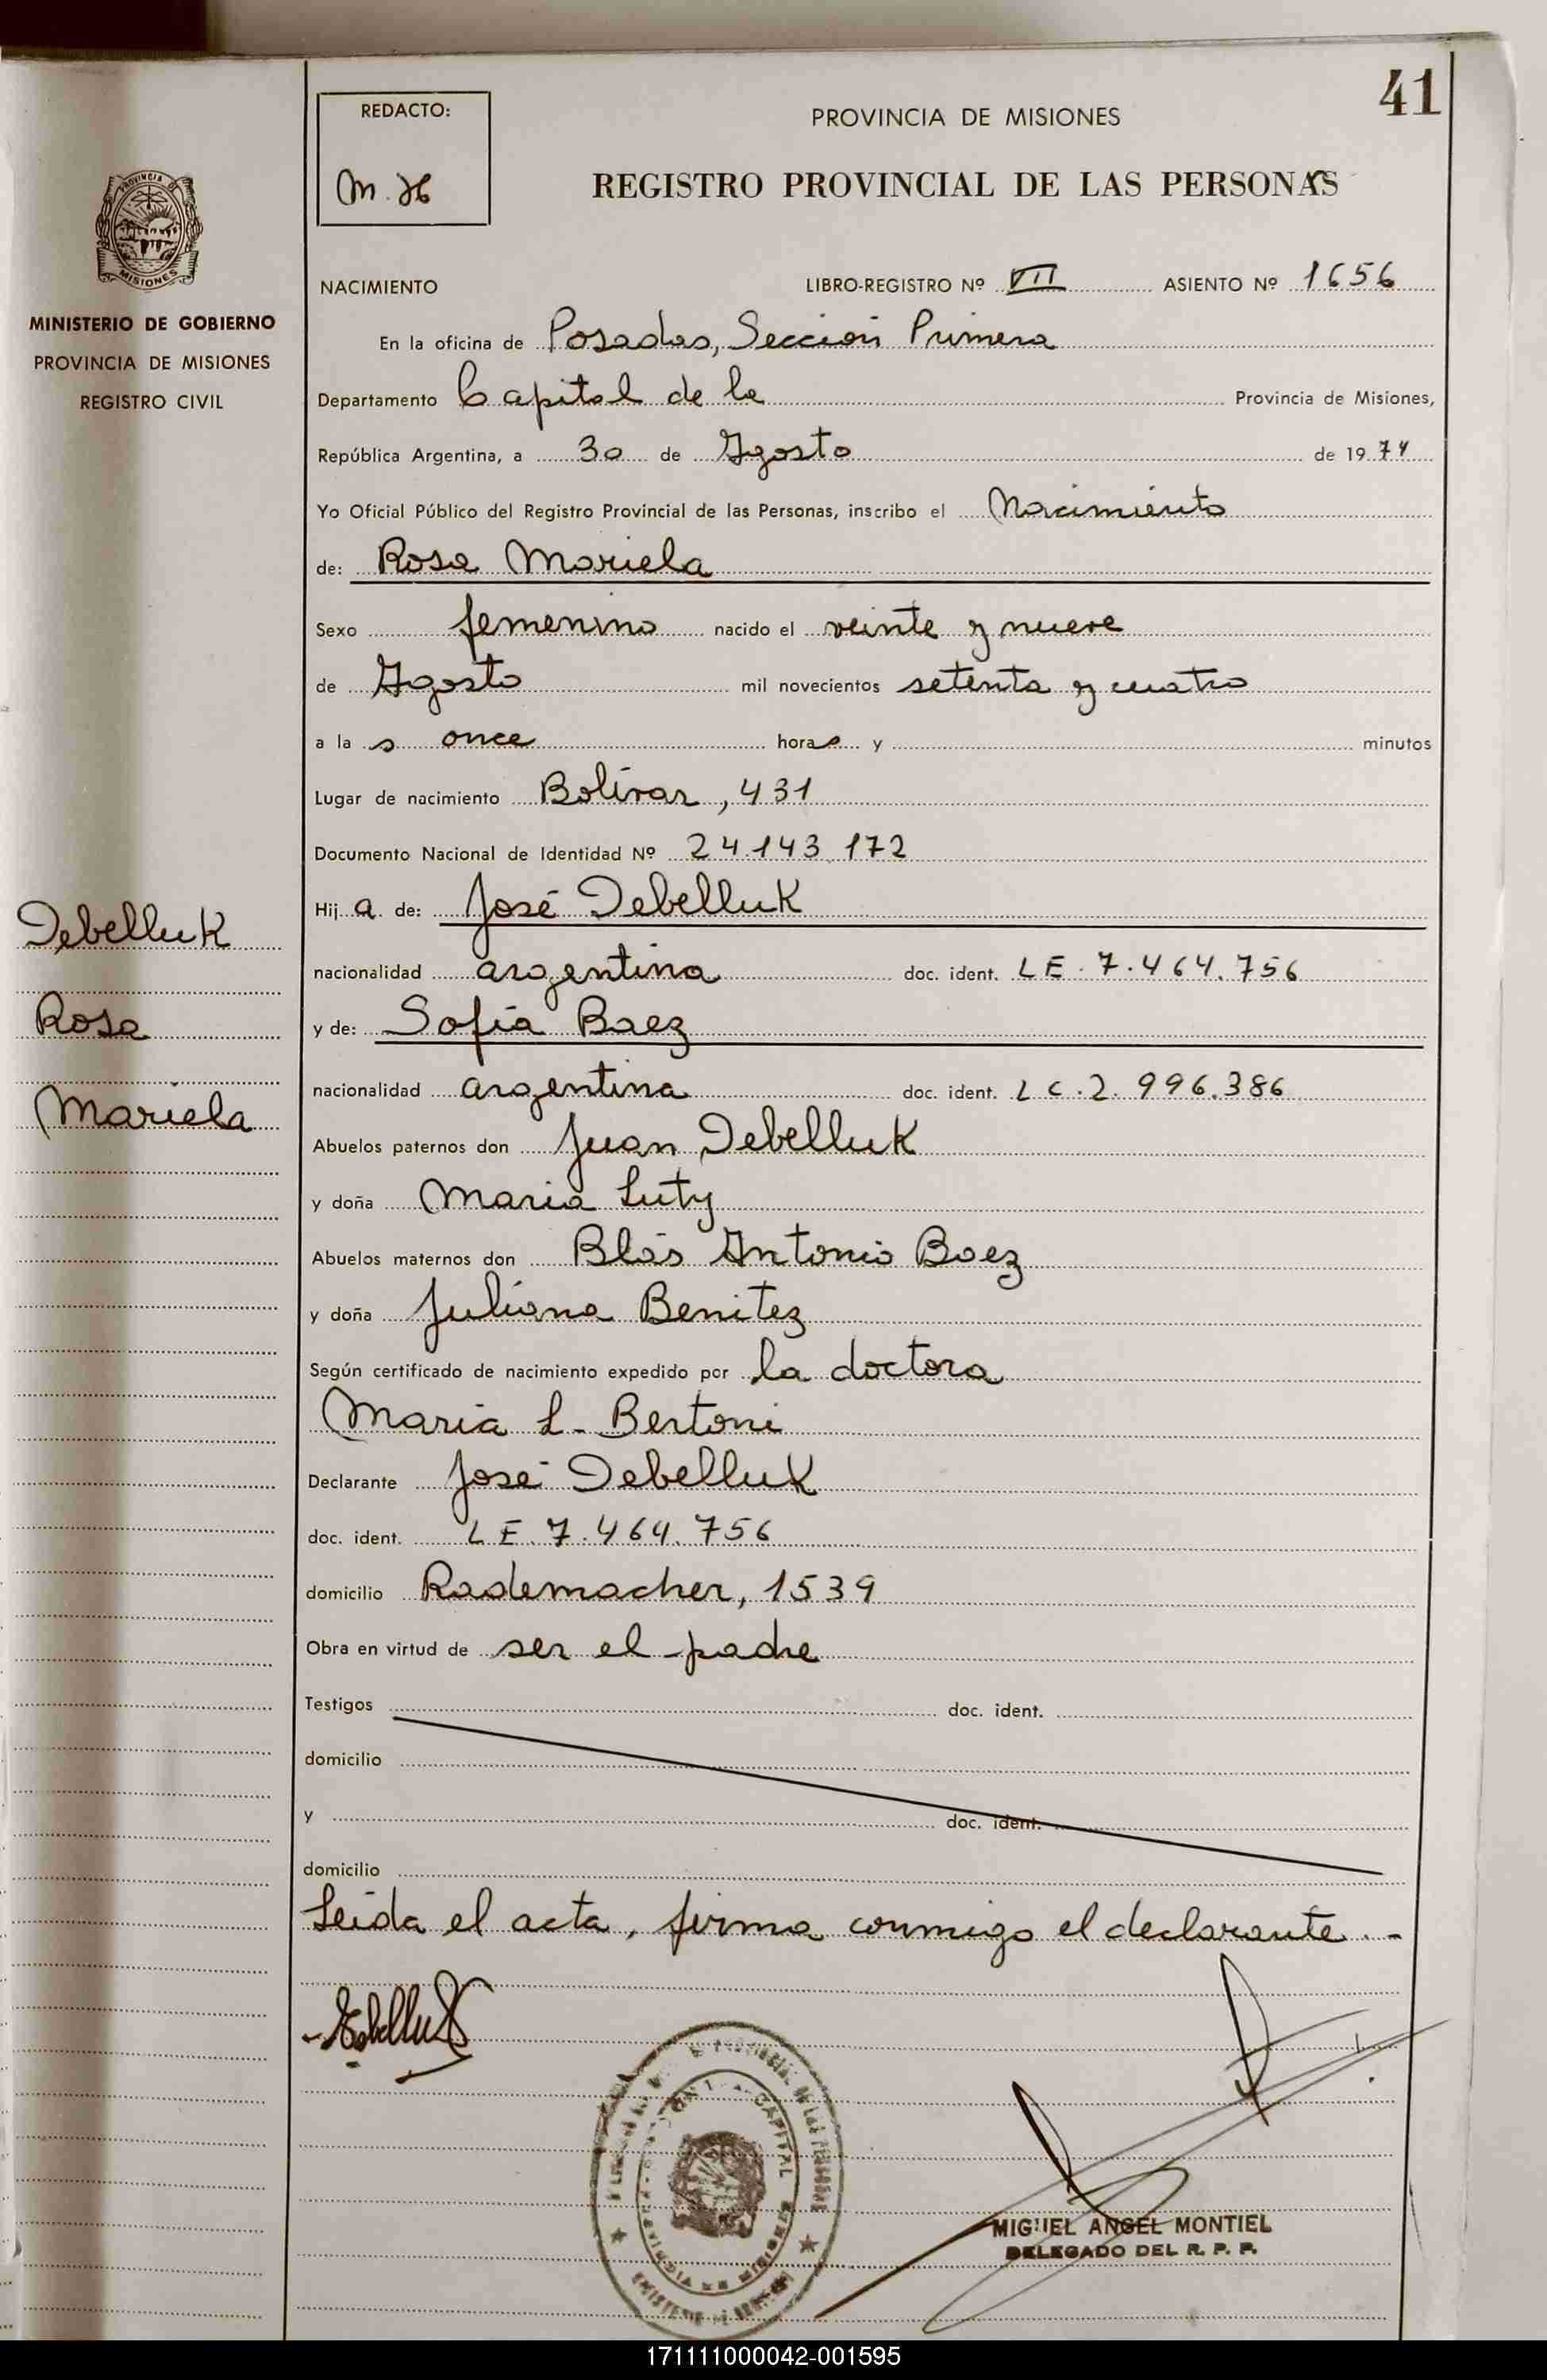 41
REDACTO:
PROVINCIA DE MISIONES
REGISTRO PROVINCIAL DE LAS PERSONAS
MISIONES
MINISTERIO DE GOBIERNO
PROVINCIA DE MISIONES
REGISTRO CIVIL
NACIMIENTO LIBRO-REGISTRO Nº VII ASIENTO Nº 1656
En la oficina de Posadas, Sección Primera
Departamento Capital de la Provincia de Misiones,
República Argentina, a 30 de Agosto de 1974
Yo Oficial Público del Registro Provincial de las Personas, inscribo el Nacimiento
de: Rosa Mariela
Sexo femenino nacido el veinte y nueve
de Agosto mil novecientos setenta y cuatro
a la s once horas y minutos
Lugar de nacimiento Bolívar, 431
Documento Nacional de Identidad Nº 24.143.172
Hij a de: José Debelluk
nacionalidad argentina doc. ident. LE.7.464.756
y de: Sofía Baez
nacionalidad argentina doc. ident. LC.2.996.386
Abuelos paternos don Juan Debelluk
y doña Maria Luty
Abuelos maternos don Blás Antonio Baez
y doña Juliana Benitez
Según certificado de nacimiento expedido por la doctora
Maria L. Bertoni
Declarante José Debelluk
doc. ident. LE.7.464.756
domicilio Rademacher, 1539
Obra en virtud de ser el padre
Testigos doc. ident.
domicilio
y doc. ident.
domicilio
Leida el acta, firma conmigo el declarante.-
Debelluk
Rosa
Mariela
MIGUEL ANGEL MONTIEL
DELEGADO DEL R. P. P.
171111000042-001595